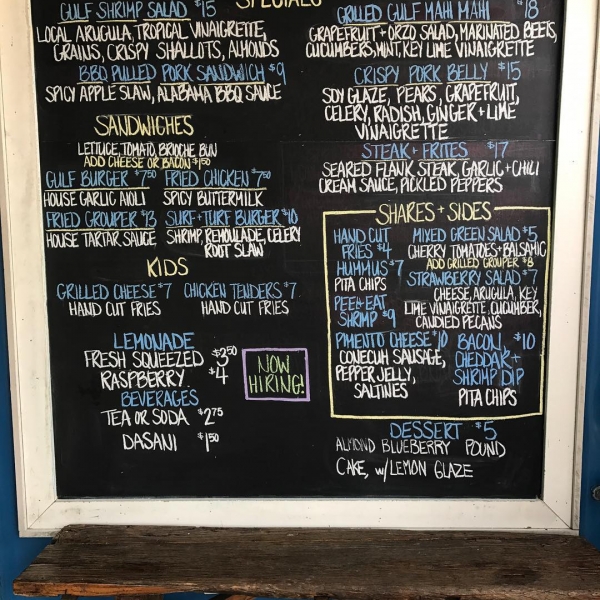 SPECIALS
GULF SHRIMP SALAD $15
LOCAL ARUGULA, TROPICAL VINAIGRETTE,
GRAINS, CRISPY SHALLOTS, ALMONDS
BBQ PULLED PORK SANDWICH $9
SPICY APPLE SLAW, ALABAMA BBQ SAUCE
GRILLED GULF MAHI MAHI $18
GRAPEFRUIT + ORZO SALAD, MARINATED BEETS,
CUCUMBERS, MINT, KEY LIME VINAIGRETTE
CRISPY PORK BELLY $15
SOY GLAZE, PEARS, GRAPEFRUIT,
CELERY, RADISH, GINGER + LIME
VINAIGRETTE
STEAK + FRITES $17
SEARED FLANK STEAK, GARLIC + CHILI
CREAM SAUCE, PICKLED PEPPERS
SANDWICHES
LETTUCE, TOMATO, BRIOCHE BUN
ADD CHEESE OR BACON $1.50
GULF BURGER $7.50
HOUSE GARLIC AIOLI
FRIED CHICKEN $7.50
SPICY BUTTERMILK
FRIED GROUPER $13
HOUSE TARTAR SAUCE
SURF + TURF BURGER $10
SHRIMP, REMOULADE, CELERY
ROOT SLAW
KIDS
GRILLED CHEESE $7
HAND CUT FRIES
CHICKEN TENDERS $7
HAND CUT FRIES
LEMONADE
FRESH SQUEEZED $3.50
RASPBERRY $4
BEVERAGES
TEA OR SODA $2.75
DASANI $1.50
NOW
HIRING!
SHARES + SIDES
HAND CUT
FRIES $4
HUMMUS $7
PITA CHIPS
PEEL + EAT
SHRIMP $9
PIMENTO CHEESE $10
CONECUH SAUSAGE,
PEPPER JELLY,
SALTINES
MIXED GREEN SALAD $5
CHERRY TOMATOES + BALSAMIC
ADD GRILLED GROUPER $8
STRAWBERRY SALAD $7
CHEESE, ARUGULA, KEY
LIME VINAIGRETTE, CUCUMBER,
CANDIED PECANS
BACON, $10
CHEDDAR +
SHRIMP DIP
PITA CHIPS
DESSERT $5
ALMOND BLUEBERRY POUND
CAKE, w/ LEMON GLAZE